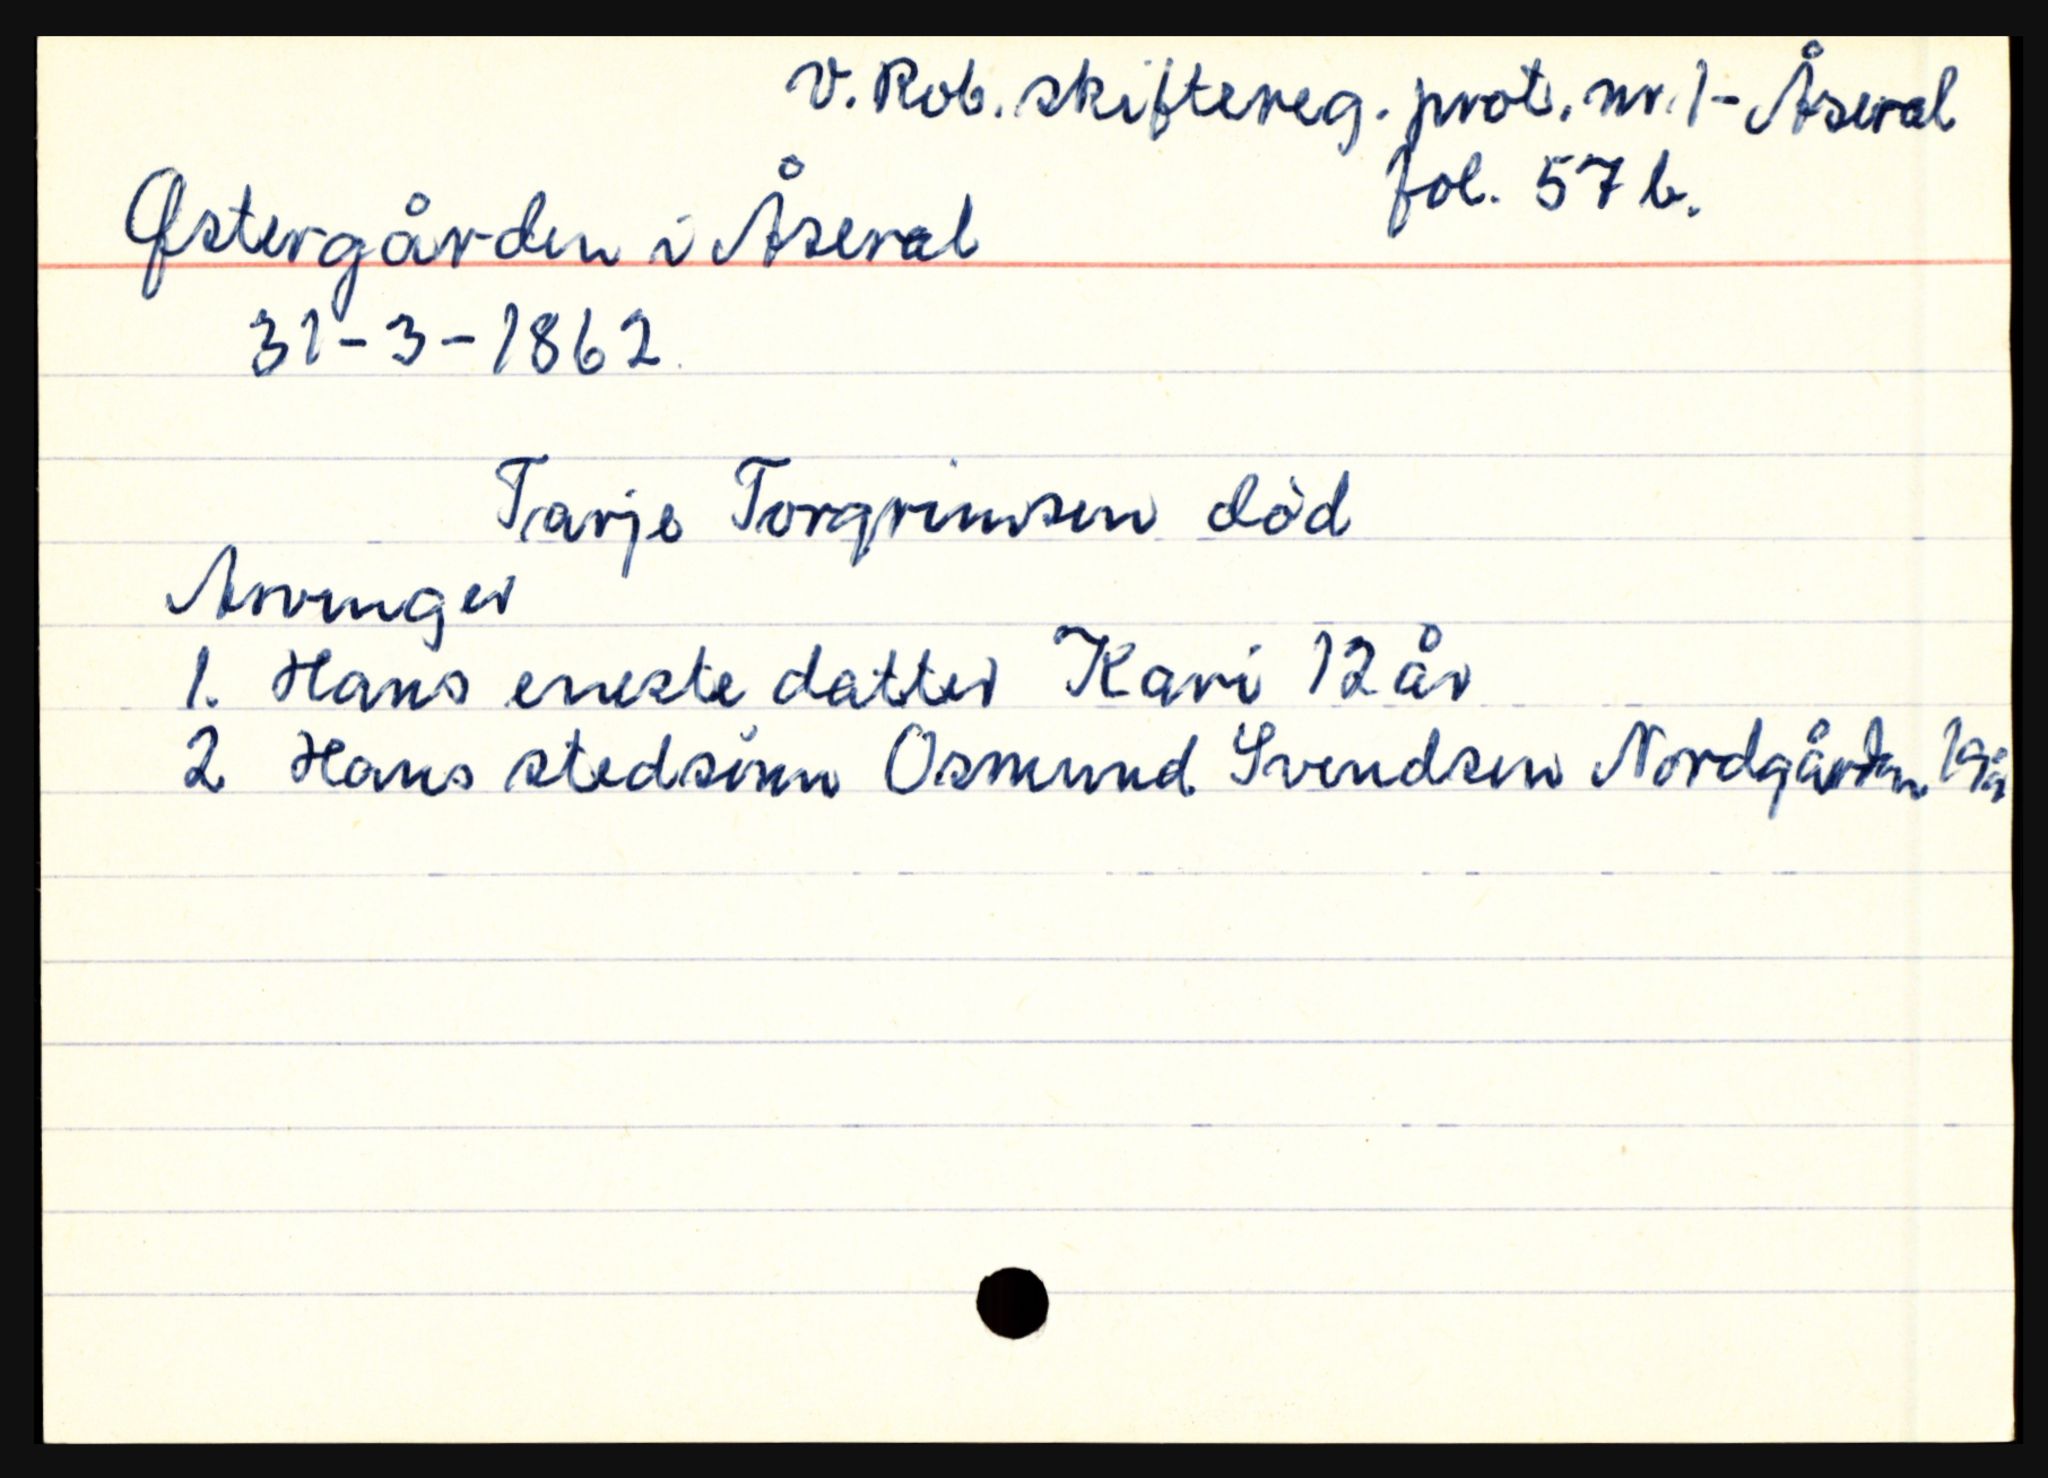 V. Rob. skiftereg. prot. nr. 1 - Åseral
fol. 57 b.
Østergården i Åseral
31-3-1862.
Tarje Torgrimsen død
Arvinger
1. Hans eneste datter Kari 12 år
2 Hans stedsønn Osmund Svendsen Nordgården 19 år